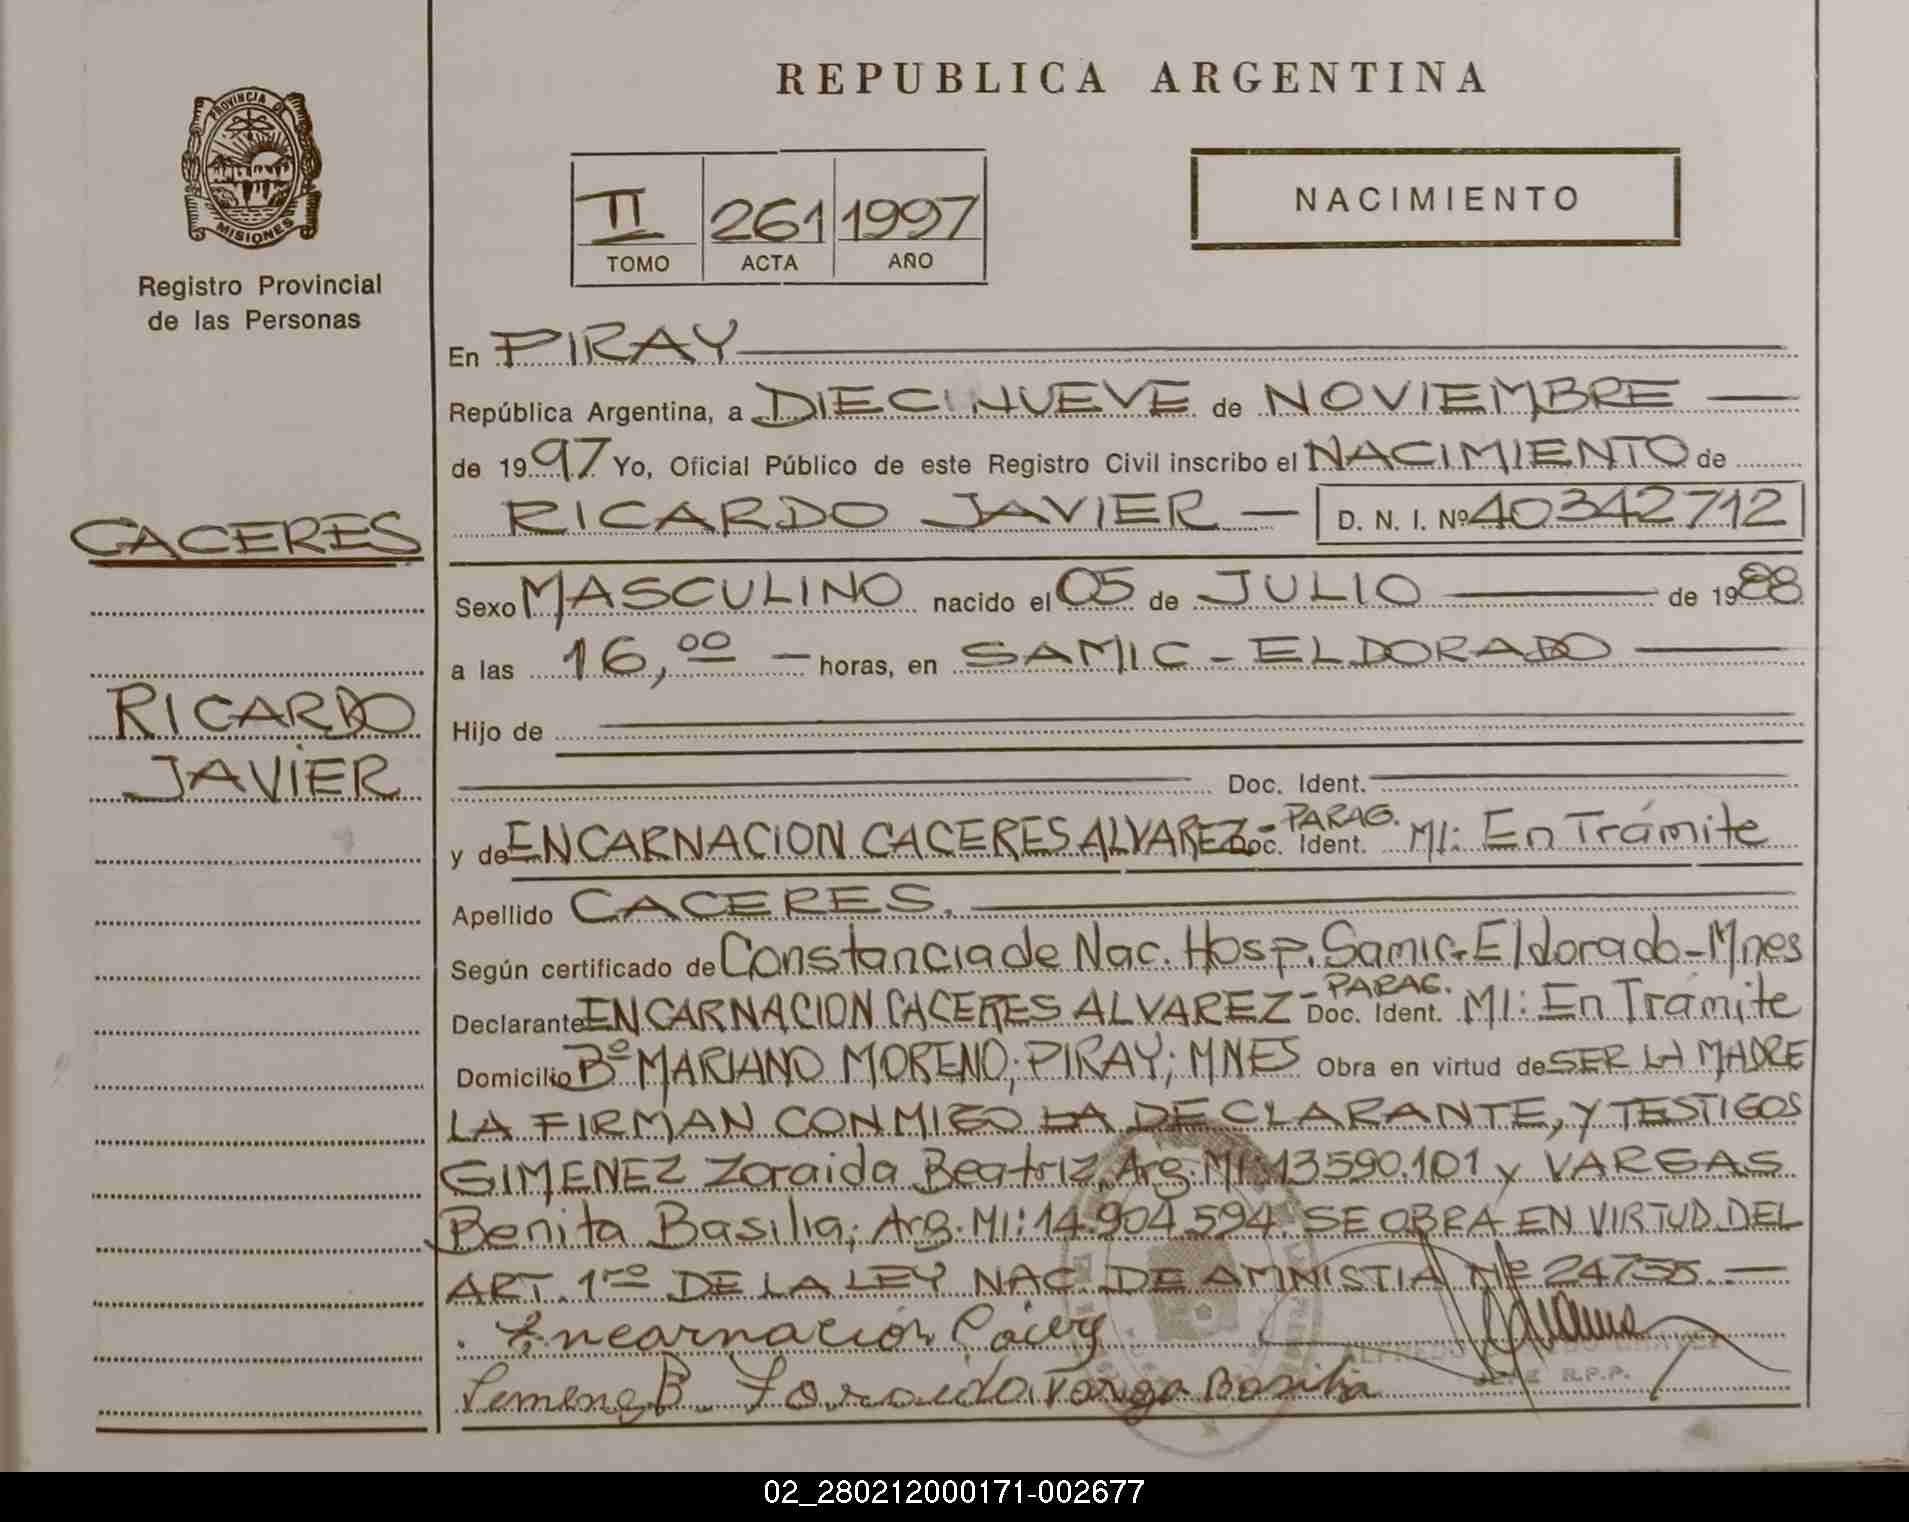 REPUBLICA ARGENTINA
PROVINCIA DE
MISIONES
Registro Provincial
de las Personas
II 261 1997
TOMO ACTA AÑO
NACIMIENTO
En PIRAY
República Argentina, a DIECINUEVE de NOVIEMBRE
de 1997 Yo, Oficial Público de este Registro Civil inscribo el NACIMIENTO de
RICARDO JAVIER — D. N. I. Nº 40342712
CACERES
RICARDO
JAVIER
Sexo MASCULINO nacido el 05 de JULIO de 1988
a las 16,00 — horas, en SAMIC - ELDORADO
Hijo de
Doc. Ident.
y de ENCARNACION CACERES ALVAREZ - PARAG. Doc. Ident. MI: En Trámite
Apellido CACERES.
Según certificado de Constancia de Nac. Hosp. Samic-Eldorado-Mnes
Declarante ENCARNACION CACERES ALVAREZ - PARAG. Doc. Ident. MI: En Trámite
Domicilio Bº MARIANO MORENO; PIRAY; MNES Obra en virtud de SER LA MADRE
LA FIRMAN CONMIGO LA DECLARANTE, Y TESTIGOS
GIMENEZ Zoraida Beatriz, Arg. MI: 13590.101 y VARGAS
Benita Basilia; Arg. MI: 14.904.594. SE OBRA EN VIRTUD DEL
ART. 1ro DE LA LEY NAC. DE AMNISTIA Nº 24755. —
Encarnación
ALFREDO
JEFE R.P.P.
B. Zoraida Varga Basilia
02_280212000171-002677